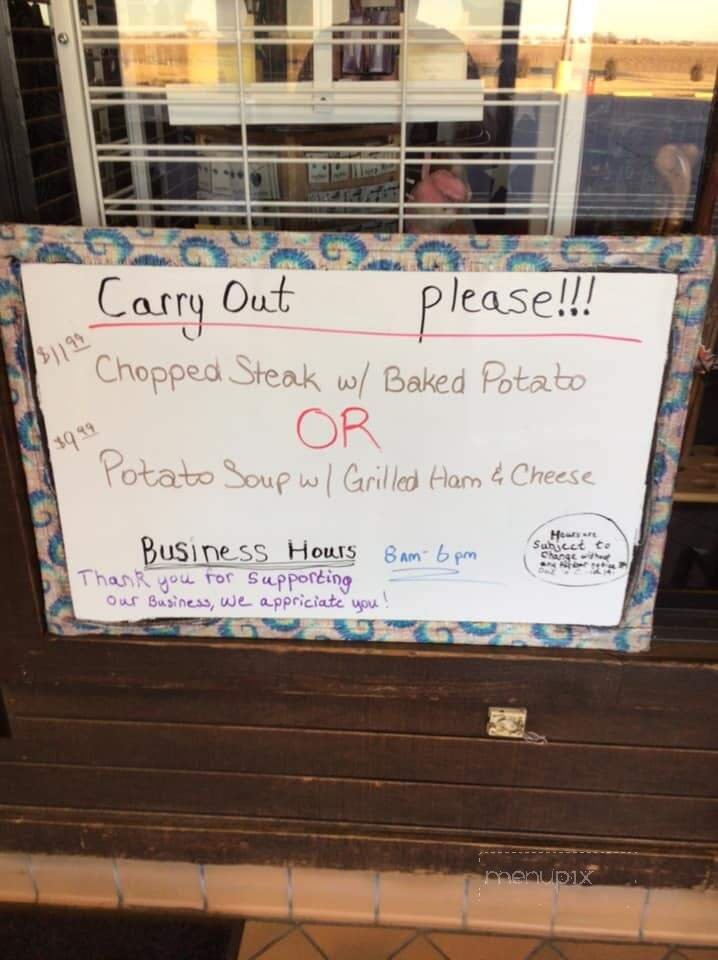 Carry Out please!!!
$11.99
Chopped Steak w/ Baked Potato
OR
$9.99
Potato Soup w/ Grilled Ham & Cheese
Business Hours 8am-6pm
Thank you for Supporting
our Business, we appriciate you!
Hours are
Subject to
Change without
any
menupix